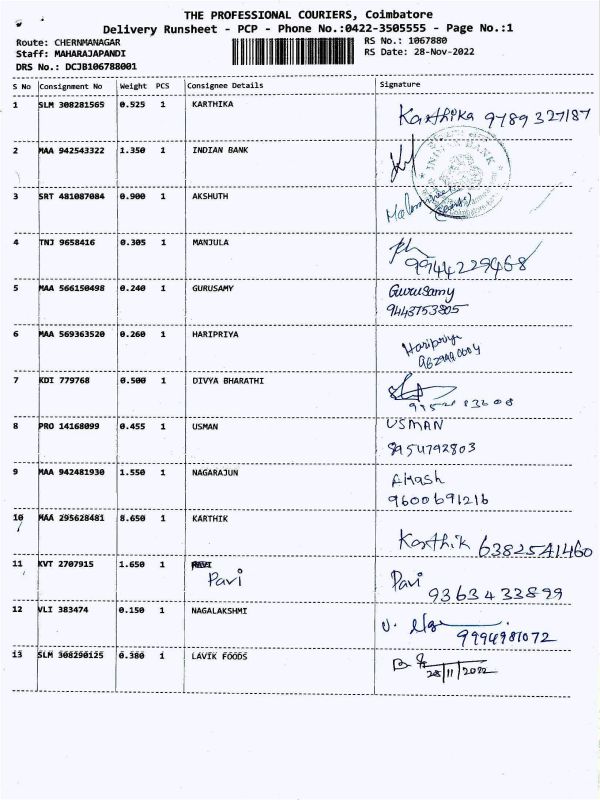 THE PROFESSIONAL COURIERS, Coimbatore
Delivery Runsheet - PCP - Phone No.:0422-3505555 - Page No.:1
Route: CHERNMANAGAR
RS No.: 1067880
Staff: MAHARAJAPANDI
RS Date: 28-Nov-2022
DRS No.: DCJB106788001
S No Consignment No Weight PCS Consignee Details Signature
1 SLM 308281565 0.525 1 KARTHIKA Karthika 9789327187
2 MAA 942543322 1.350 1 INDIAN BANK
INDIAN BANK
3 SRT 481087084 0.900 1 AKSHUTH
4 TNJ 9658416 0.305 1 MANJULA
9944229468
5 MAA 566150498 0.240 1 GURUSAMY Gurusamy
9443753805
6 MAA 569363520 0.260 1 HARIPRIYA Haripriya
7 KDI 779768 0.500 1 DIVYA BHARATHI
8 PRO 14168099 0.455 1 USMAN USMAN
8954792803
9 MAA 942481930 1.550 1 NAGARAJUN Akash
9600691216
10 MAA 295628481 8.650 1 KARTHIK Karthik 6382541460
11 KVT 2707915 1.650 1 Pavi Pavi
9363433899
12 VLI 383474 0.150 1 NAGALAKSHMI
9994981072
13 SLM 308290125 0.380 1 LAVIK FOODS
28/11/2022